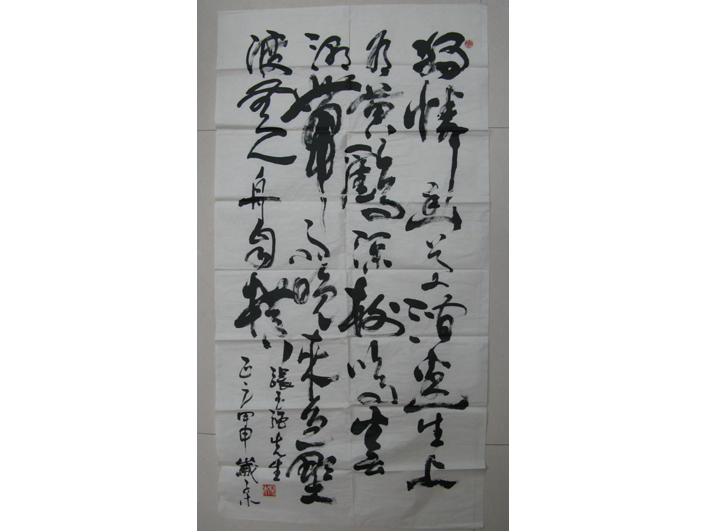 獨憐幽草澗邊生上
有黃鸝深樹鳴春
潮帶雨晚來急野
渡無人舟自橫
張 強先生
正之甲申歲